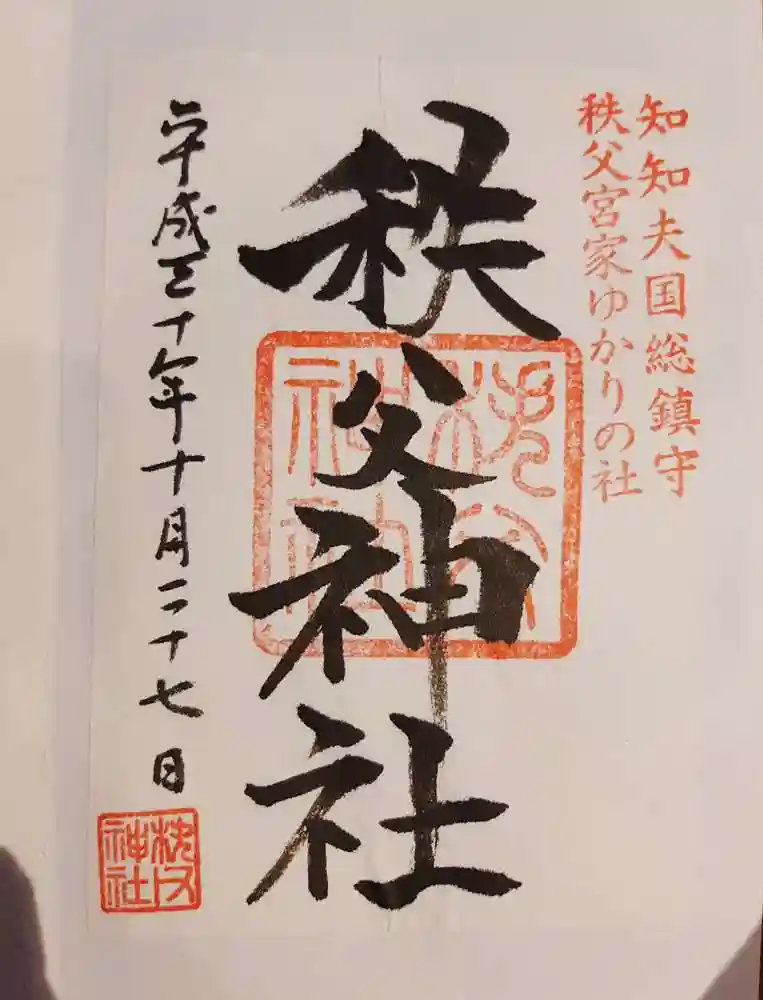 知知夫国総鎮守
秩父宮家ゆかりの社
秩父神社
秩父神社
平成三十年十月二十七日
秩父神社